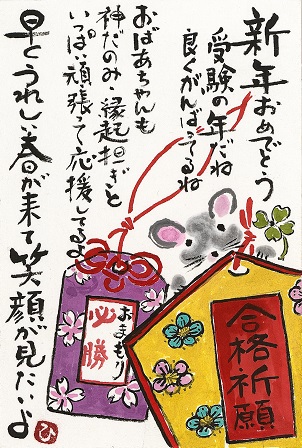 新年おめでとう
受験の年だね
良くがんばってるね
おばあちゃんも
神だのみ・縁起担ぎと
いっぱい頑張って応援してるよ
早くうれしい春が来て笑顔が見たいよ
ひ
おまもり
必勝
合格祈願